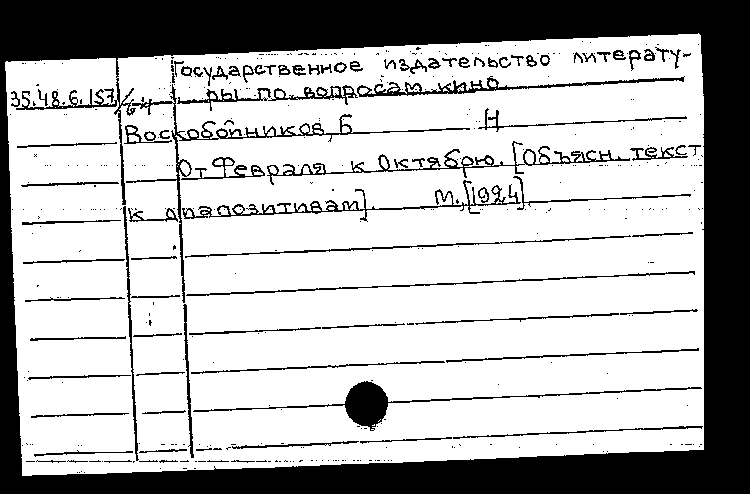 Государственное издательство литерату-
35.48.6.157/64 ры по вопросам кино.
Воскобойников, Б Н
От Февраля к Октябрю. [Объясн. текст
к диапозитивам]. М., [1924]